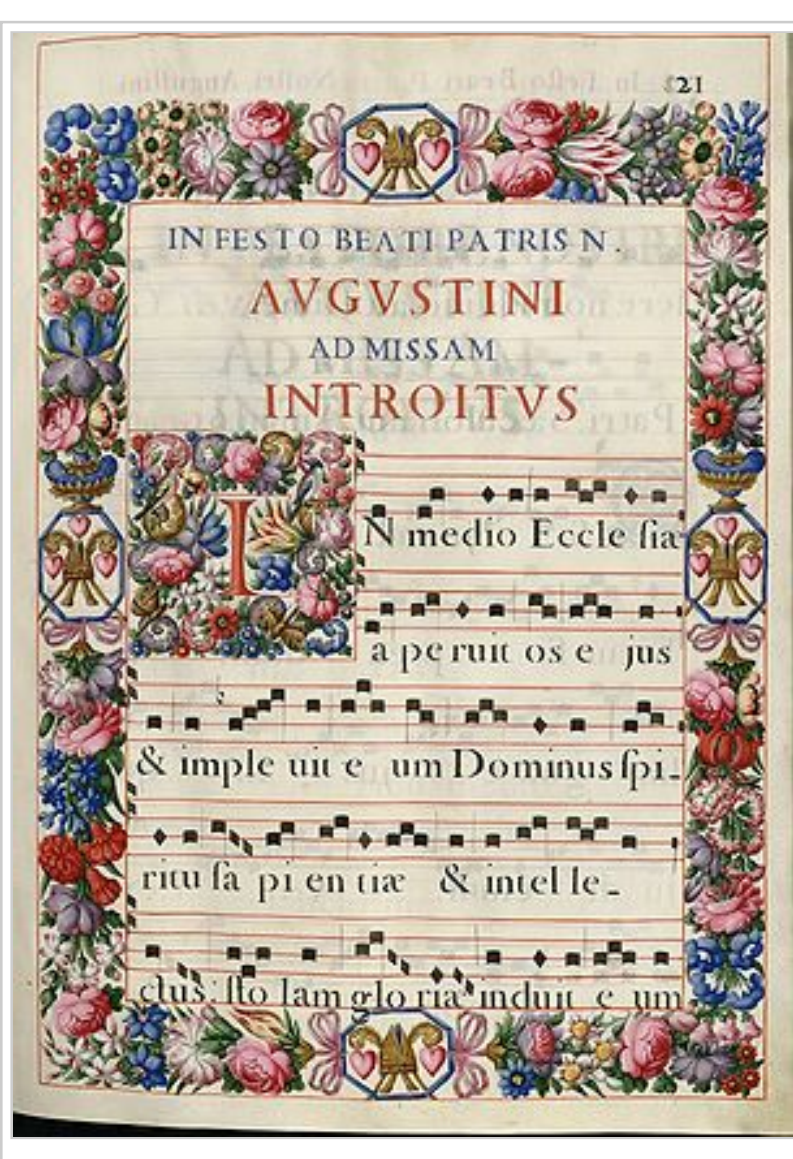 121
IN FESTO BEATI PATRIS N.
AVGVSTINI
AD MISSAM
INTROITVS
IN medio Eccle ſia
a pe ruit os e jus
& imple uit e um Dominus ſpi-
ritu ſa pi en tiæ & intel le-
ctus: ſto lam glo riæ induit e um